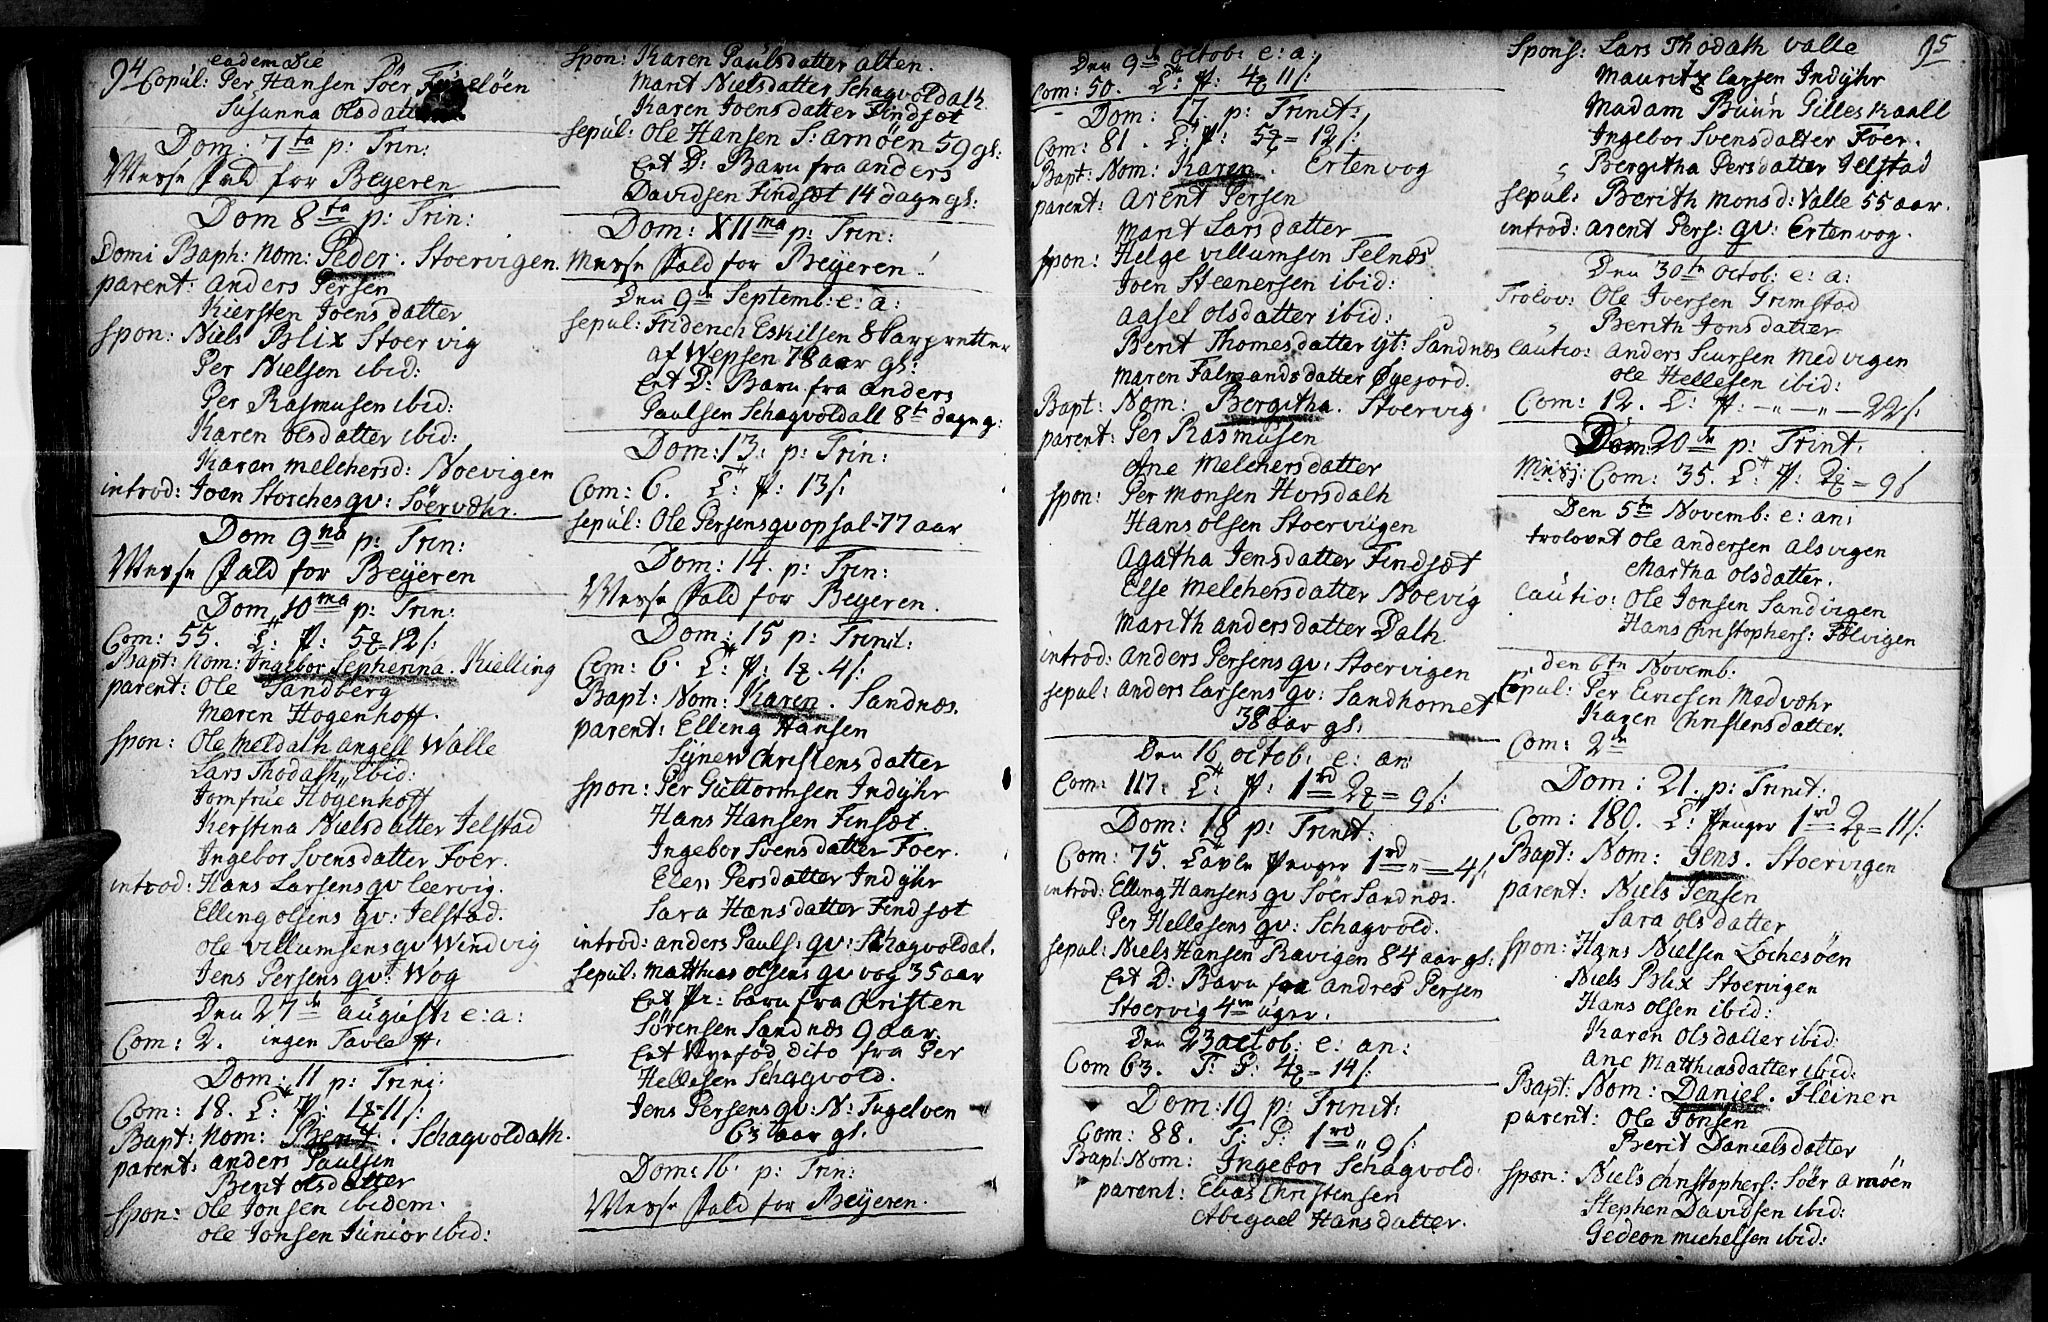 94
eadem die
Copul: Per Hansen Söer Fugelöen
Susanna Olsdatter
Dom: 7ta p: Trin:
Messe fald for Beyeren
Dom 8ta p: Trin:
Domi Baph: Nom: Peder. Stoervigen.
parent: Anders Persen
Kiersten Joensdatter
spon: Niels Blix Stoervig
Per Nielsen ibid:
Per Rasmusen ibid:
Karen Olsdatter ibid:
Karen Melchersd: Noevigen
introd: Joen Storches qv: Söervæhr.
Dom 9na p: Trin:
Messe fald for Beyeren
Dom 10ma p: Trin:
Com: 55. L: P: 5 12 s:
Bapt: Nom: Ingebor Sepherina. Kielling
parent: Ole Sandberg
Maren Hogenhoff.
spon: Ole Meldalh Angell Walle
Lars Thodalh ibid:
Jomfrue Högenhoff
Kerstina Nielsdatter Jelstad
Ingebor Svensdatter Foer.
introd: Hans Larsens qv Leervig.
Elling Olsens qv: Jelstad.
Ole Villumsens qv Windvig
Jens Persens qv: Wog
Den 27de August: e: a:
Com: 2. ingen Tavle P.
Dom: 11 p: Trini:
Com: 18. L: P: 1 11 s:
Bapt: Nom: Berit. Schagvoldalh.
parent: Anders Paulsen
Berit Olsdatter
spon: Ole Jonsen ibidem.
Ole Jonsen Junior ibid:
spon: Karen Paulsdatter Alten.
Marit Nielsdatter Schagvoldalh
Karen Joensdatter Findsæt
sepul: Ole Hansen S: Arnöen 59 gl:
Eet D: Barn fra Anders
Davidsen Findsæt 14 dage gl:
Dom: XIIma p: Trin:
Messe fald for Beyeren!
Den 9de Septemb: e: a:
sepul: Friderich Eskilsen
af Wepsen 78 aar gl:
Eet D: Barn fra Anders
Paulsen Schagvoldall 8te dage g:
Dom: 13: p: Trin:
Com: 6. L: P: 13 s:
sepul: Ole Persens qv opsal - 77 aar
Dom: 14. p: Trin:
Messe fald for Beyeren.
Dom: 15 p: Trinit:
Com: 6. L: P: 1 . 4 s:
Bapt: Nom: Karen. Sandnæs.
parent: Elling Hansen
Synev Christensdatter
spon: Per Guttormsen Indyhr
Hans Hansen Finsæt
Ingebor Svensdatter Foer.
Elen Persdatter Indyhr
Sara Hansdatter Findsæt
introd: Anders Pauls: qv: Schagvoldal.
sepul: Matthias Olsens qv vog 35 aar
Eet Pi: barn fra Christen
Sörensen Sandnæs 9 aar.
Eet Nyefød dito fra Per
Hellesen Schagvold.
Jens Persens qv: N: Fugelöen
63 aar gl.
Dom: 16. p: Trin:
Messe fald for Beyeren.
Den 9de Octob: e: a:
Com: 50. L: P: 4 11 s:
Dom: 17. p: Trinit:
Com: 81. L: P: 5 = 12 s:
Bapt: Nom: Karen. Ertenvog
parent: Arent Persen
Marit Larsdatter
spon: Helge Villumsen Selnæs
Joen Steenersen ibid:
Aasel Olsdatter ibid:
Berit Thomesdatter Sandnæs
Maren Falmandsdatter Øgejord.
Bapt: Nom: Bergitha. Stoervig.
parent: Per Rasmusen
Ane Melchersdatter
spon: Per Monsen Horsdalh
Hans Olsen Stoerviigen
Agatha Jensdatter Findsæt
Else Melchersdatter Noevig
Marith Andersdatter Dalh
introd: Anders Persens qv: Stoervigen
sepul: Anders Larsens qv: Sandhornet
38 aar gl:
Den 16 Octob: e: an:
Com: 117: L: P: 1rd 2 = 9 s:
Dom: 18 p: Trinit:
Com: 75. Tavle Penger 1rd „ = 4 s.
introd: Elling Hansens qv Söer Sandnæs.
Per Hellesens qv: Schagvold.
sepul: Niels Hansen Ravigen 84 aar gl:
Eet D: Barn fra Andres Persen
Stoervig 4re uger.
Den 23 Octob: e: an:
Com 63. T: P: 4 = 14 s:
Dom: 19 p: Trinit:
Com: 88. T: P: 1rd „ 9 s:
Bapt: Nom: Ingebor Schagvold.
parent: Elias Christensen
Abigael Hansdatter.
95
Spons: Lars Thodalh Valle
Mauritz Larsen Indyhr
Madam Buun Gilleskaall
Ingebor Svensdatter Foer.
Bergitha Persdatter Jelstad
sepul: Berith Monsd: Valle 55 aar.
introd: Arent Pers: qv: Ertenvog.
Den 30te Octob: e: a:
Trolov: Ole Iversen Grimstad
Berith Jonsdatter
Cautio: Anders Siursen Medvigen
Ole Hellesen ibid:
Com: 12. L: P: - „ - „ - 22 s:
Dom: 20de p: Trint.
Com: 35. L: P: 2 = 9 s
Den 5te Novemb: e: an:
trolovet Ole Andersen Alsvigen
Martha Olsdatter.
Cautio: Ole Jonsen Sandvigen
Hans Christophers: Fölvigen
den 6te Novemb:
Copul: Per Eiricsen Medvæhr
Karen Christensdatter.
Com: 2de
Dom: 21. p: Trinit:
Com: 180. L: Penger 1rd 2 = 11 s:
Bapt: Nom: Jens. Stoervigen
parent: Niels Jensen
Sara Olsdatter
spon: Hans Nielsen Lochesöen
Niels Blix Stoervigen
Hans Olsen ibid:
Karen Olsdatter ibid:
Ane Matthiasdatter ibid:
Bapt: Nom: Daniel. Fleinen
parent: Ole Jonsen
Berit Danielsdatter
spon: Niels Christophers: Söer Arnöen
Stephen Davidsen ibid:
Gedeon Michelsen ibid: